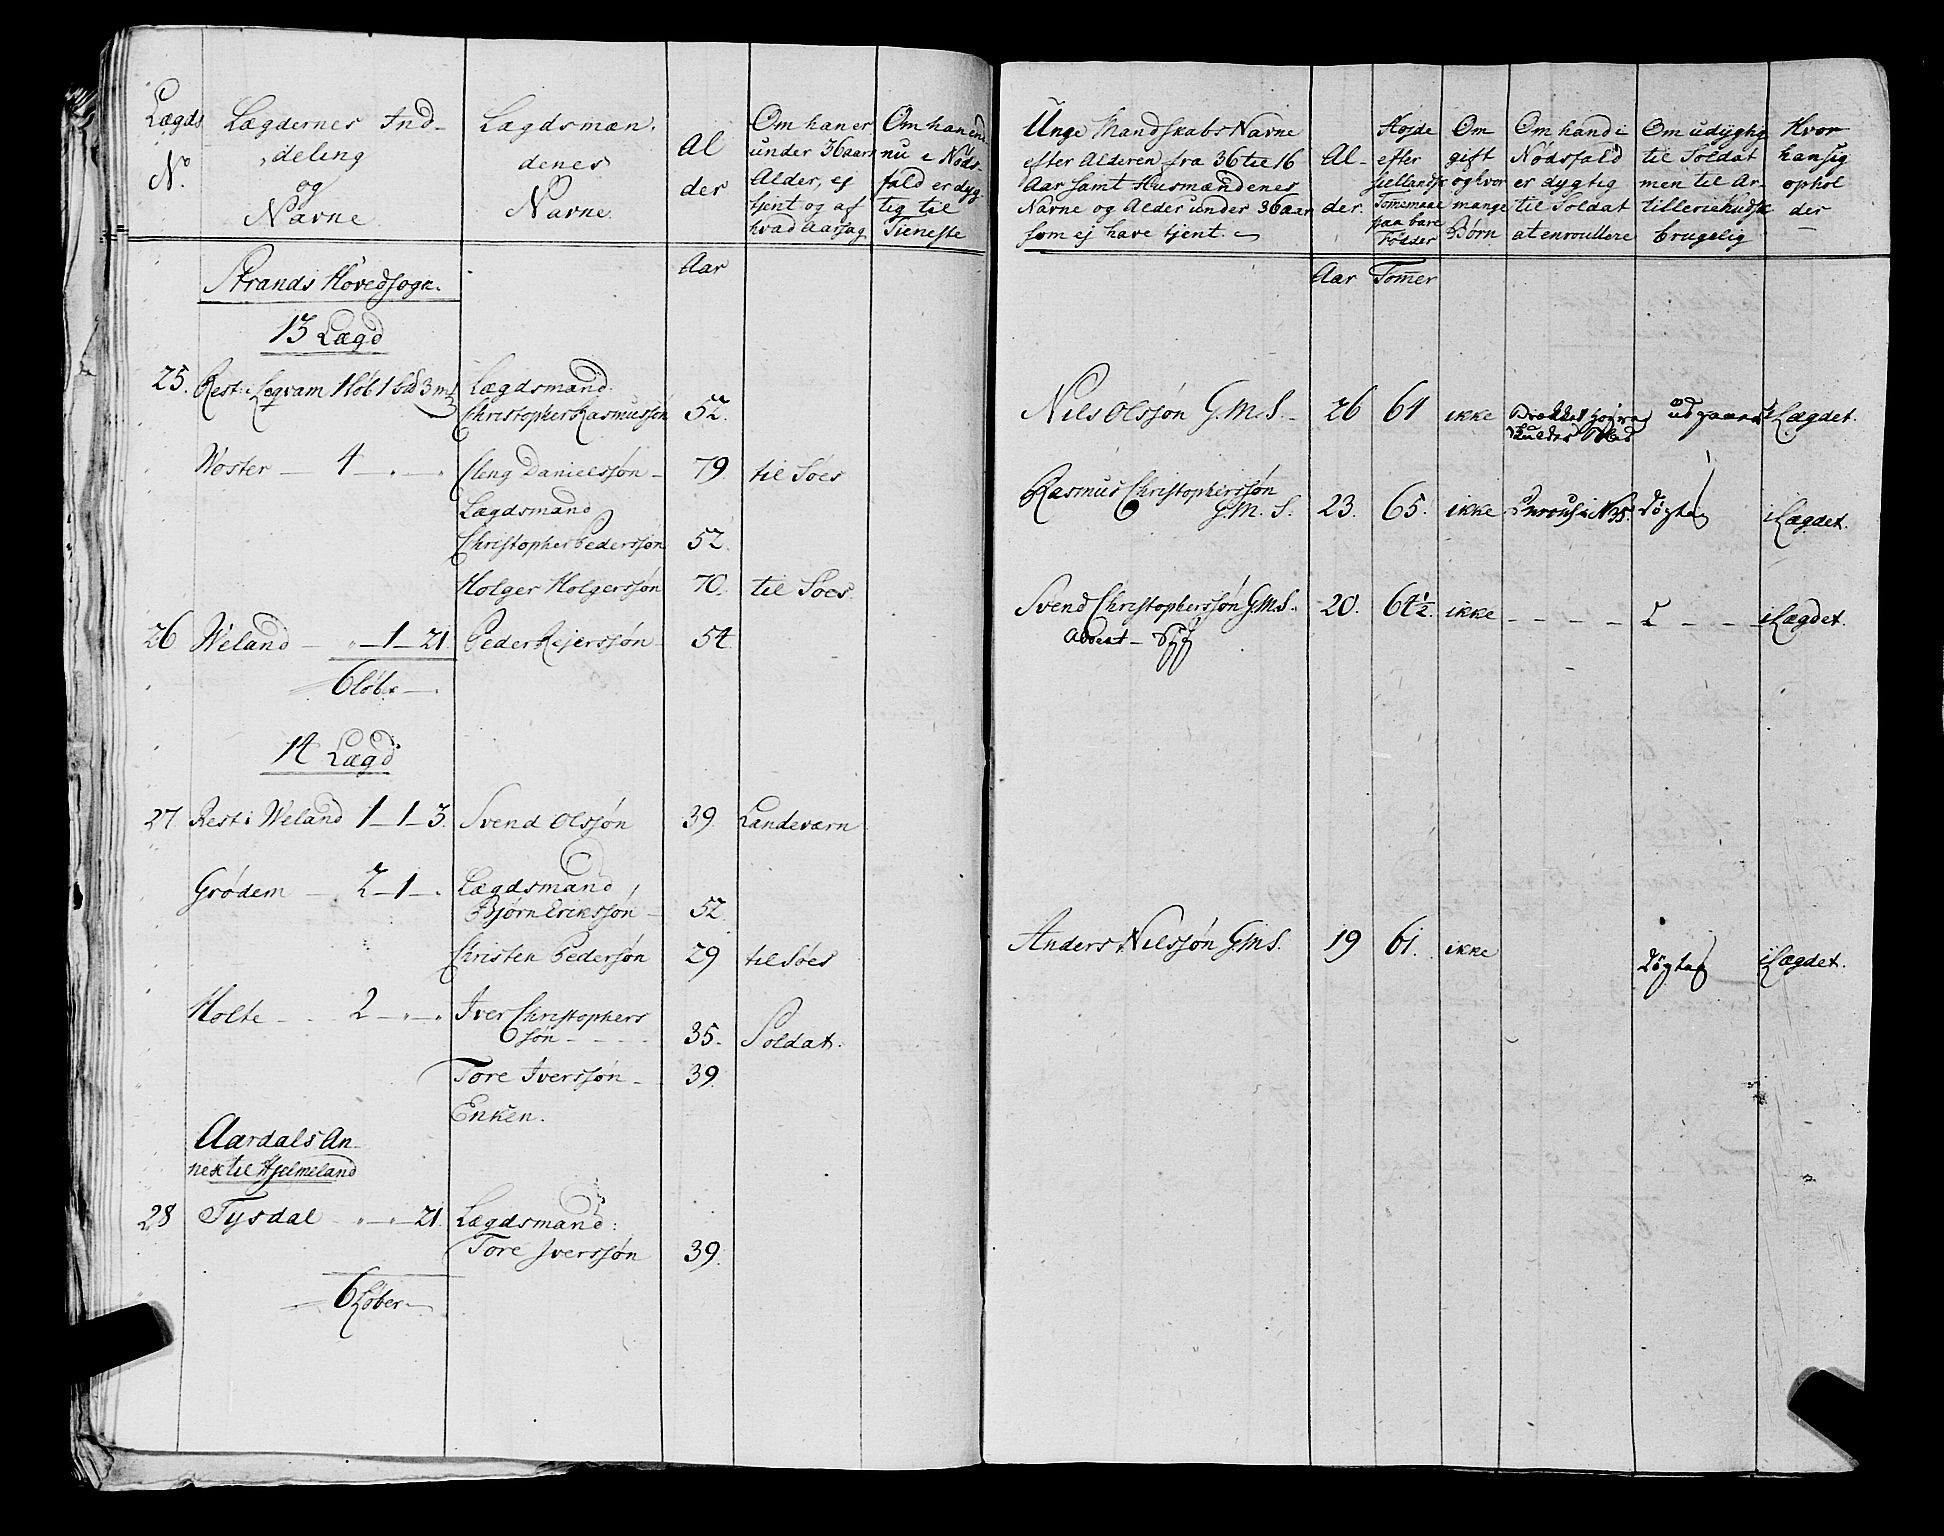 Lægds
N.
Lægdernes Ind-
deling
og
Navne
Lægdsmæn-
denes
Navne.
Al
der
Om han er
under 36 aars
Alder, ej
tjent og af
hvad Aarsag
Om han end
nu i Nøds-
fald er dyg-
tig til
Tieneste
Strands Hovedsogn.
Aar
13 Lægd
25. Rest i 1 løb 1 3 Lægdsmand
Christopher Rasmussøn 52.
Wøster 4 Danielssøn 79. til Søes
Lægdsmand
Christopher Pederssøn 52.
Holger Holgerssøn 70. til Søes.
26 Weland 1 21. Peder Rejerssøn 54.
6 løber
14 Lægd
27 Rest i Weland 1 1 3. Svend Olssøn 39. Landeværn
Grødem 2 1 Lægdsmand
Bjørn Erikssøn 52.
Christen Pedersøn 29 til Søes
Holte 2 Iver Christophers
søn 35. Soldat.
Tore Iverssøn 39.
Enken.
Aardals An-
nex til Hjelmeland
28 Tysdal 21. Lægdsmand:
Tore Iverssøn 39.
6 Løber
Unge Mandskabs Navne
efter Alderen fra 36 til 16
Aar samt Husmændenes
Navne og Alder under 36 aar
som ej have tjent.
Al-
der.
Højde
efter
siellandsk
Tommemaal
paa bare
Fødder
Om
gift
og hvor
mange
Børn
Om hand i
Nødsfald
er dygtig
til Soldat
at enroullere
Om udygtig
til Soldat
men til Ar-
tilleriekudsk
brugelig
Hvor
han sig
ophol
der
Aar Tomer
Nils Olssøn G.M.S. 26 64 ikke Brækket højre udgaaer i Lægdet.
Skulder Blad
Rasmus Christopherssøn
G.M.S. 23. 65. ikke Dygtig i Lægdet.
Svend Christopherssøn G.M.S. 20. 64½. ikke i Lægdet.
Anders Nilssøn G.M.S. 19 61. ikke Dygtig i Lægdet.